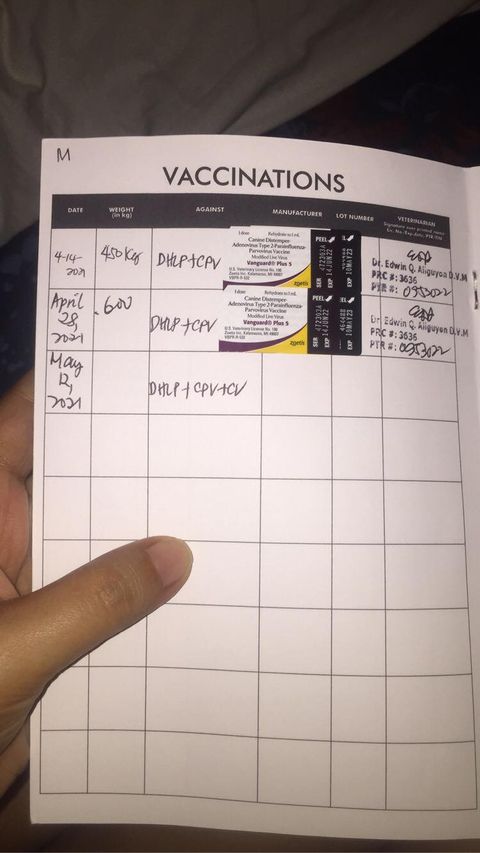 M
VACCINATIONS
DATE WEIGHT (in kg) AGAINST MANUFACTURER LOT NUMBER VETERINARIAN
4-14-2021 .450kgs DHLP+CPV
1 dose Rehydrate to 1 mL
Canine Distemper-
Adenovirus Type 2-Parainfluenza-
Parvovirus Vaccine
Modified Live Virus
Vanguard® Plus 5
U.S. Veterinary License No. 190
Zoetis Inc. Kalamazoo, MI 49007
zoetis
PEEL
SER 472203A
EXP 14JUN22
EXP 10MAY23
Dr. Edwin Q. Aliguyon D.V.M
PRC #: 3636
PTR #: 0353022
April 28, 2021 .600 DHLP+CPV
1 dose Rehydrate to 1 mL
Canine Distemper-
Adenovirus Type 2-Parainfluenza-
Parvovirus Vaccine
Modified Live Virus
Vanguard® Plus 5
U.S. Veterinary License No. 190
Zoetis Inc. Kalamazoo, MI 49007
zoetis
PEEL
SER 472203A
EXP 14JUN22
EXP 10MAY23
Dr. Edwin Q. Aliguyon D.V.M
PRC #: 3636
PTR #: 0353022
May 12, 2021 DHLP+CPV+CV